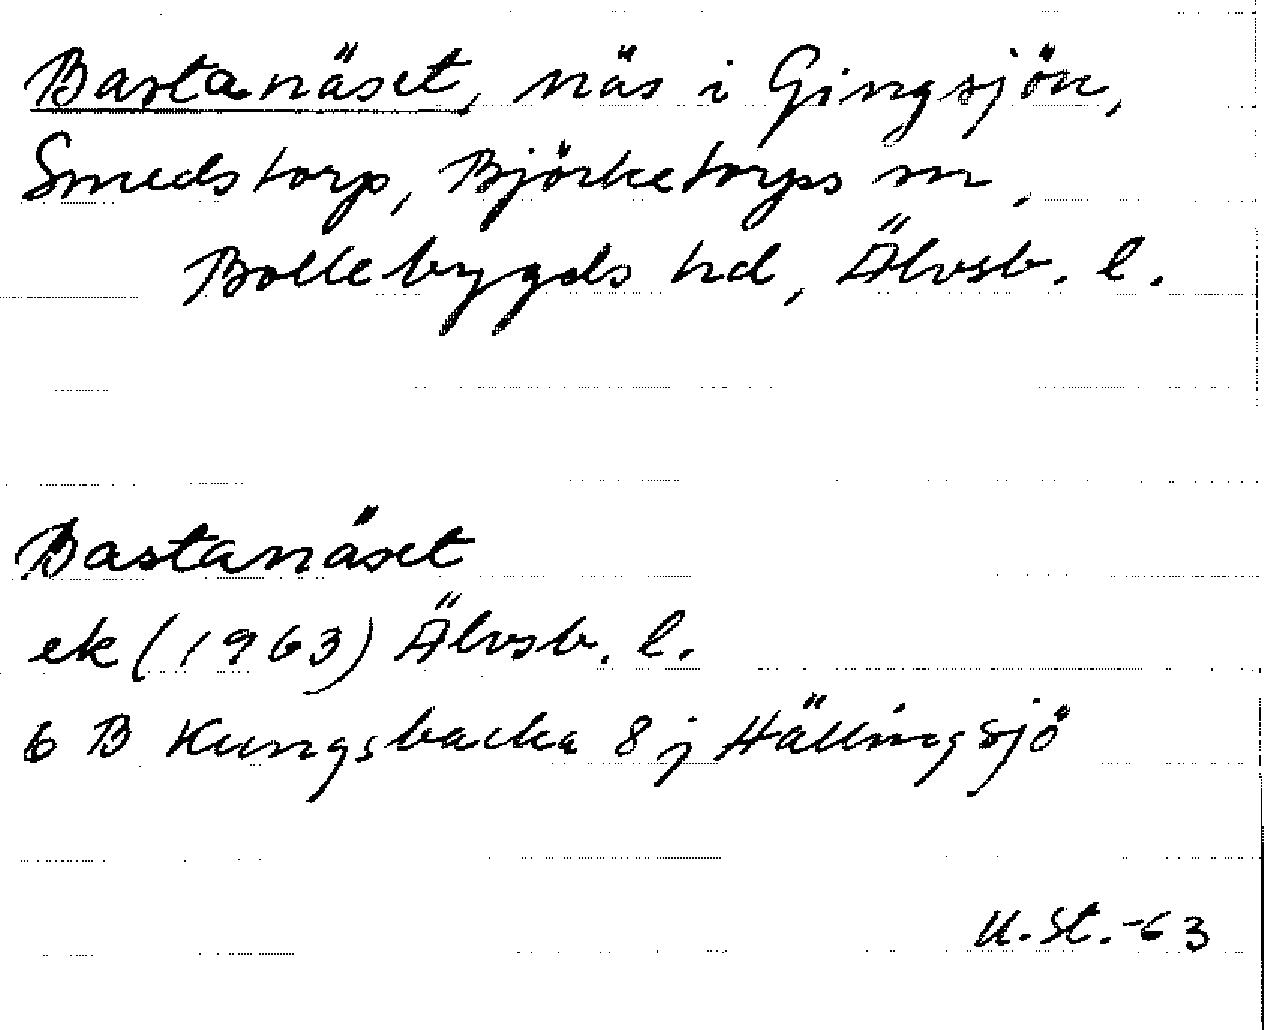 Bastanäset, näs i Gingsjön,
Smedstorp, Björketorps sn,
Bollebygds hd, Älvsb. l.
Bastanäset
ek (1963) Älvsb. l.
6 B Kungsbacka 8 j Hällingsjö
U. St. -63